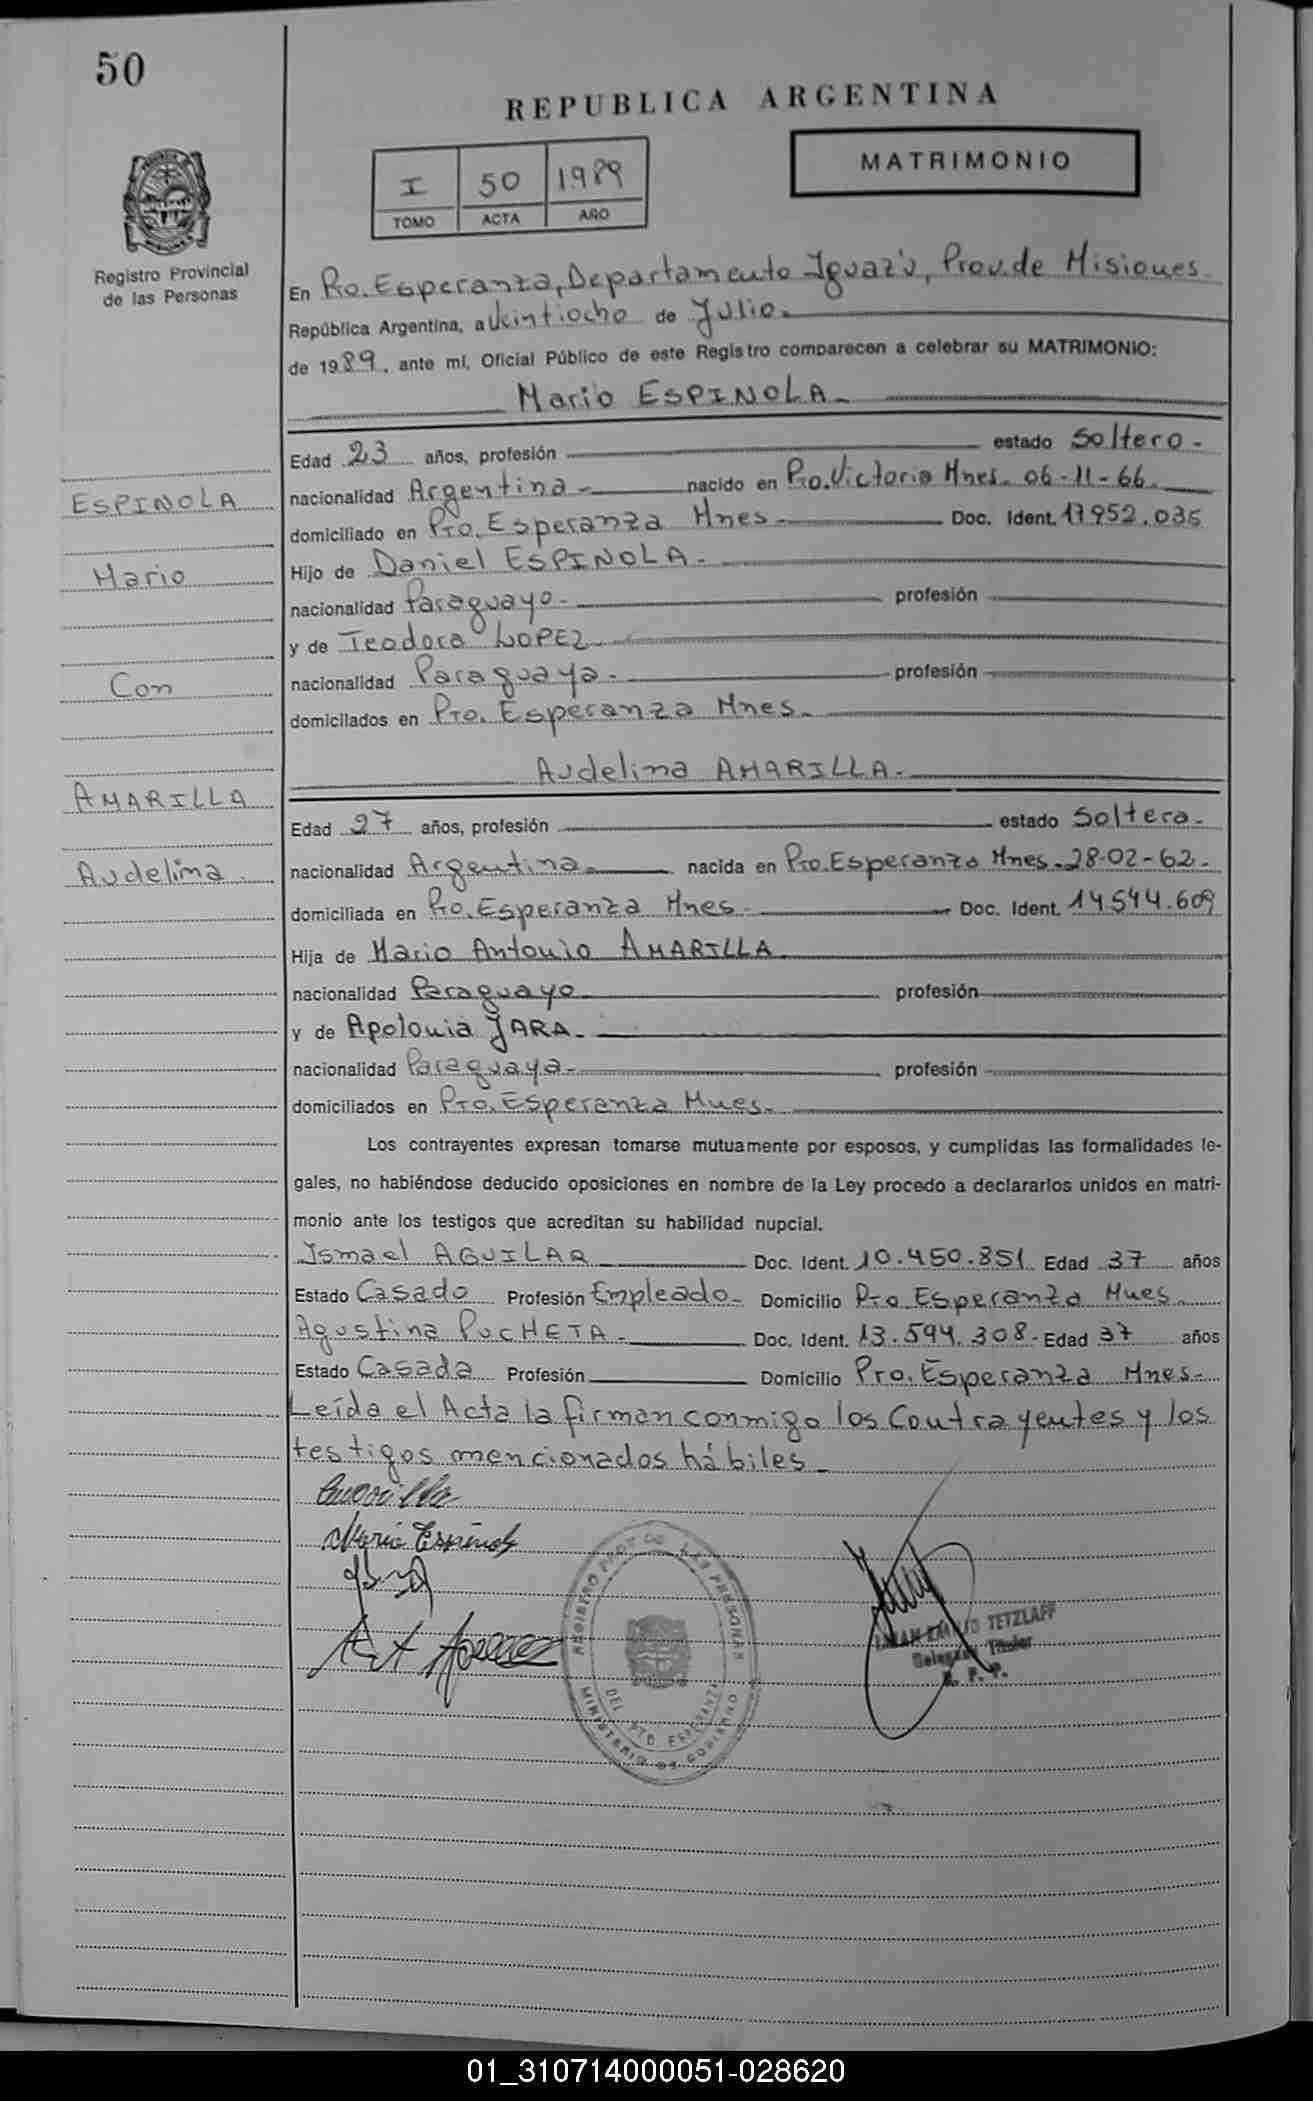 50
REPUBLICA ARGENTINA
MATRIMONIO
I 50 1989
TOMO ACTA AÑO
Registro Provincial
de las Personas
En Pto. Esperanza, Departamento Iguazú, Prov. de Misiones
República Argentina, a Veintiocho de Julio.
de 1989, ante mi, Oficial Público de este Registro comparecen a celebrar su MATRIMONIO:
Mario ESPINOLA.
Edad 23 años, profesión estado Soltero.
nacionalidad Argentina nacido en Pto. Victoria Mnes. 06-11-66.
domiciliado en Pto. Esperanza Mnes. Doc. Ident. 17952.035
Hijo de Daniel ESPINOLA.
nacionalidad Paraguayo. profesión
y de Teodora LOPEZ
nacionalidad Paraguaya. profesión
domicilados en Pto. Esperanza Mnes.
Audelina AMARILLA.
Edad 27 años, profesión estado Soltera.
nacionalidad Argentina. nacida en Pto. Esperanza Mnes. 28-02-62.
domiciliada en Pto. Esperanza Mnes. Doc. Ident. 14544.609
Hija de Mario Antonio AMARILLA
nacionalidad Paraguayo profesión
y de Apolonia JARA.
nacionalidad Paraguaya. profesión
domiciliados en Pto. Esperanza Mnes.
Los contrayentes expresan tomarse mutuamente por esposos, y cumplidas las formalidades le-
gales, no habiéndose deducido oposiciones en nombre de la Ley procedo a declararlos unidos en matri-
monio ante los testigos que acreditan su habilidad nupcial.
Ismael AGUILAR Doc. Ident. 10.450.851 Edad 37 años
Estado Casado Profesión Empleado. Domicilio Pto. Esperanza Mnes.
Agustina PUCHETA. Doc. Ident. 13.594.308. Edad 37 años
Estado Casada Profesión Domicilio Pto. Esperanza Mnes.
Leída el Acta la firman conmigo los Contrayentes y los
testigos mencionados hábiles.
Mario Espinola
ESPINOLA
Mario
Con
AMARILLA
Audelina
REGISTRO PROV. DE LAS PERSONAS
DEL. PTO. ESPERANZA
MINISTERIO DE GOBIERNO
TETZLAFF
Delegado Titular
R. P. P.
01_310714000051-028620